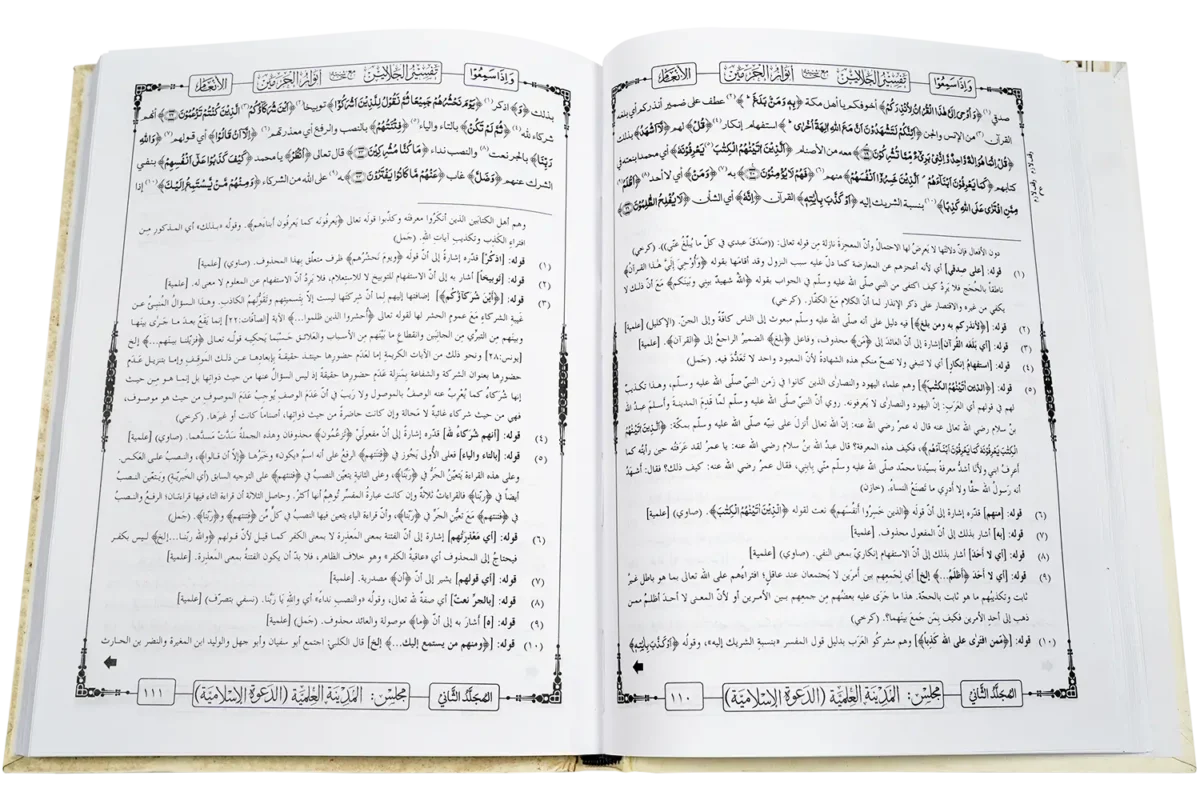 وَإِذَا سَمِعُوْا
تَفْسِيْرُ الْجَلَالَيْن مع حاشية اَنْوَارُ الْحَرَمَيْن
اَلْاَنْعَام
صدقي (١) ﴿وَاُوْحِيَ اِلَيَّ هٰذَا الْقُرْاٰنُ لِاُنْذِرَكُمْ﴾ أخوفكم يا أهل مكة ﴿بِهٖ وَمَنْۢ بَلَغَ﴾ (٢) عطف على ضمير أنذركم أي بلغه
القرآن (٣) من الإنس والجن ﴿اَئِنَّكُمْ لَتَشْهَدُوْنَ اَنَّ مَعَ اللّٰهِ اٰلِهَةً اُخْرٰى﴾ استفهام إنكار (٤) ﴿قُلْ﴾ لهم ﴿لَّاۤ اَشْهَدُ﴾ بذلك
﴿قُلْ اِنَّمَا هُوَ اِلٰهٌ وَّاحِدٌ وَّاِنَّنِيْ بَرِيْٓءٌ مِّمَّا تُشْرِكُوْنَ﴾ معه من الأصنام ﴿اَلَّذِيْنَ اٰتَيْنٰهُمُ الْكِتٰبَ﴾ (٥) ﴿يَعْرِفُوْنَهٗ﴾ أي محمدا بنعته في
كتابهم ﴿كَمَا يَعْرِفُوْنَ اَبْنَآءَهُمْ ۘ اَلَّذِيْنَ خَسِرُوْۤا اَنْفُسَهُمْ﴾ منهم (٦) ﴿فَهُمْ لَا يُؤْمِنُوْنَ﴾ به (٧) ﴿وَمَنْ﴾ أي لا أحد (٨) ﴿اَظْلَمُ﴾ (٩)
﴿مِمَّنِ افْتَرٰى عَلَى اللّٰهِ كَذِبًا﴾ (١٠) بنسبة الشريك إليه ﴿اَوْ كَذَّبَ بِاٰيٰتِهٖ﴾ القرآن ﴿اِنَّهٗ﴾ أي الشأن ﴿لَا يُفْلِحُ الظّٰلِمُوْنَ﴾
دون الأفعال فإن دلالتها لا يَعرض لها الاحتمال وأنّ المعجزة نازلة مِن قوله تعالى: ((صَدَقَ عبدي في كلّ ما يُبلِّغ عنّي)). (كرخي)
(١) قوله: [على صدقي] أي لأنه أعجزهم عن المعارضة كما دلّ عليه سبب النزول وقد أقامها بقوله ﴿وَاُوْحِيَ اِلَيَّ هٰذَا الْقُرْاٰنُ﴾
ناطقاً بالحُجَج فلا يَرِدُ كيف اكتفى من النبي صلّى الله عليه وسلّم في الجواب بقوله ﴿اللّٰه شهيدٌ بيني وبينكم﴾ مع أنّ ذلك لا
يكفي من غيره والاقتصار على ذكر الإنذار لما أنّ الكلام مع الكفّار. (كرخي)
(٢) قوله: [﴿لأنذركم به ومن بلغ﴾] فيه دليل على أنه صلّى الله عليه وسلّم مبعوث إلى الناس كافّةً وإلى الجنّ. (الإكليل) [علمية]
(٣) قوله: [أي بَلَغَه القُرآن] إشارة إلى أنّ العائد إلى ﴿مَن﴾ محذوف، وفاعل ﴿بلغ﴾ الضميرُ الراجعُ إلى ﴿القرآن﴾. [علمية]
(٤) قوله: [استفهام إنكار] أي لا تنبغي ولا تصحّ منكم هذه الشهادةُ لأنّ المعبود واحد لا تَعَدُّدَ فيه. (جَمل)
(٥) قوله: [﴿الَّذِيْنَ اٰتَيْنٰهُمُ الْكِتٰبَ﴾] وهم علماء اليهود والنصارى الذين كانوا في زَمن النبي صلّى الله عليه وسلّم، وهذا تكذيبٌ
لهم في قولهم أي العَرَب: إنّ اليهود والنصارى لا يَعرفونه. روي أنّ النبي صلّى الله عليه وسلّم لمّا قَدِمَ المدينةَ وأسلمَ عبدُ الله
بنُ سلام رضي الله تعالى عنه قال له عمر رضي الله عنه: إنّ الله تعالى أنزل على نبيّه صلّى الله عليه وسلّم بمكّة: ﴿الَّذِيْنَ اٰتَيْنٰهُمُ
الْكِتٰبَ يَعْرِفُوْنَهٗ كَمَا يَعْرِفُوْنَ اَبْنَآءَهُمْ﴾، فكيف هذه المعرفة؟ قال عبدُ الله بنُ سلام رضي الله عنه: يا عمرُ لقد عَرَفتُه حين رأيتُه كما
أعرفُ ابني ولأنا أشدُّ معرفةً بسيّدنا محمّد صلّى الله عليه وسلّم منّي بابني، فقال عمرُ رضي الله عنه: كيف ذلك؟ فقال: أشهَدُ
أنه رَسولُ الله حقًّا ولا أدرِي ما تَصنَعُ النساءُ. (خازن)
(٦) قوله: [منهم] قدّره إشارة إلى أنّ قولَه ﴿الذين خَسِرُوا أنفُسَهم﴾ نعت لقوله ﴿الَّذِيْنَ اٰتَيْنٰهُمُ الْكِتٰبَ﴾. (صاوي) [علمية]
(٧) قوله: [به] أشار بذلك إلى أنّ المفعول محذوف. [علمية]
(٨) قوله: [أي لا أحَدَ] أشار بذلك إلى أنّ الاستفهام إنكاريّ بمعنى النفي. (صاوي) [علمية]
(٩) قوله: [أي لا أحَدَ ﴿أظْلَمُ...﴾ إلخ] أي لجَمعِهم بين أمرَين لا يَجتمعان عند عاقل؛ افتراءُهم على الله تعالى بما هو باطل غيرُ
ثابت وتكذيبُهم ما هو ثابت بالحجّة. هذا ما جَرَى عليه بعضُهم مِن جمعِهم بين الأمرين أو لأنّ المعنى لا أحدَ أظلمُ ممن
ذهب إلى أحدِ الأمرين فكيف بمَن جَمَعَ بينهما؟. (كرخي)
(١٠) قوله: [﴿مَمن افترَى على اللهِ كذِبًا﴾] وهم مشركو العَرَب بدليل قول المفسر «بنسبةِ الشريك إليه»، وقولُه ﴿اَوْ كَذَّبَ بِاٰيٰتِهٖ﴾
مجلس: اَلْمَدِيْنَةُ الْعِلْمِيَّة (الدَّعْوَةُ الْإِسْلَامِيَّة)
اَلْمُجَلَّدُ الثَّانِيْ
١١٠
وَإِذَا سَمِعُوْا
تَفْسِيْرُ الْجَلَالَيْن مع حاشية اَنْوَارُ الْحَرَمَيْن
اَلْاَنْعَام
بذلك ﴿وَ﴾ اذكر (١) ﴿يَوْمَ نَحْشُرُهُمْ جَمِيْعًا ثُمَّ نَقُوْلُ لِلَّذِيْنَ اَشْرَكُوْۤا﴾ توبيخا (٢) ﴿اَيْنَ شُرَكَآؤُكُمُ﴾ (٣) ﴿الَّذِيْنَ كُنْتُمْ تَزْعُمُوْنَ﴾ أنهم
شركاء لله (٤) ﴿ثُمَّ لَمْ تَكُنْ﴾ بالتاء والياء (٥) ﴿فِتْنَتُهُمْ﴾ بالنصب والرفع أي معذرتهم (٦) ﴿اِلَّاۤ اَنْ قَالُوْا﴾ أي قولهم (٧) ﴿وَاللّٰهِ
رَبِّنَا﴾ بالجر نعت (٨) والنصب نداء ﴿مَا كُنَّا مُشْرِكِيْنَ﴾ قال تعالى ﴿اُنْظُرْ﴾ يا محمد ﴿كَيْفَ كَذَبُوْا عَلٰۤى اَنْفُسِهِمْ﴾ بنفي
الشرك عنهم ﴿وَضَلَّ﴾ غاب ﴿عَنْهُمْ مَّا كَانُوْا يَفْتَرُوْنَ﴾ ـه (٩) على الله من الشركاء ﴿وَمِنْهُمْ مَّنْ يَّسْتَمِعُ اِلَيْكَ﴾ (١٠) إذا
وهم أهل الكتابَين الذين أنكَرُوا معرفته وكذّبوا قولَه تعالى ﴿يَعرفُونَه كما يَعرفون أبناءَهم﴾. وقوله «بذلك» أي المذكور مِن
افتراءِ الكذب وتكذيبِ آياتِ الله. (جَمل)
(١) قوله: [اذكُرْ] قدّره إشارةً إلى أنّ قولَه ﴿ويومَ نَحشُرُهم﴾ ظرف متعلّق بهذا المحذوف. (صاوي) [علمية]
(٢) قوله: [توبيخا] أشار به إلى أنّ الاستفهام للتوبيخ لا للاستعلام، فلا يَرِدُ أنّ الاستفهام عن المعلوم لا معنى له. [علمية]
(٣) قوله: [﴿أَيْنَ شُرَكَآؤُكُم﴾] إضافتها إليهم لما أنّ شركتَها ليست إلّا بتسميتِهم وتَقَوُّلِهم الكاذب. وهذا السؤالُ المُنبِئُ عن
غَيبةِ الشركاءِ مَعَ عموم الحشرِ لها لقوله تعالى ﴿اُحشروا الذين ظلموا...﴾ الآية [الصافّات:٢٢] إنما يَقَعُ بعد ما جَرَى بينَها
وبينهم مِن التبرِّي مِن الجانبَين وانقطاعِ ما بَيْنَهم مِن الأسباب والعَلائق حَسْبَما يَحكِيه قولُه تعالى ﴿فَزيَّلْنا بينَهم...﴾ إلخ
[يونس:٢٨] ونحو ذلك من الآيات الكريمةِ إما لعَدَم حضورِها حينئذ حقيقةً بإبعادِها عن ذلك الموقفِ وإما بتنزيلِ عَدَمِ
حضورِها بعنوان الشركة والشفاعة بمَنزلةِ عَدَمِ حضورِها حقيقةً إذ ليس السؤالُ عنها من حيث ذواتها بل إنما هو مِن حيث
إنها شُرَكاءُ كما يُعرِبُ عنه الوصفُ بالموصول ولا رَيبَ في أنّ عَدَمَ الوصف يُوجِبُ عَدَمَ الموصوفِ مِن حيث هو موصوف،
فهي من حيث شركاء غائبةٌ لا مَحالةَ وإن كانت حاضرةً من حيث ذواتها، أصناماً كانت أو غيرَها. (كرخي)
(٤) قوله: [أنهم شُرَكاءُ لله] قدّره إشارةً إلى أنّ مفعولَيْ ﴿تَزعُمُون﴾ محذوفان وهذه الجملةُ سَدّتْ مَسَدَّهما. (صاوي) [علمية]
(٥) قوله: [بالتاء والياء] فعلى الأولى يَجُوز في ﴿فتنتهم﴾ الرفعُ على أنه اسمُ «يكون» وخَبَرُها ﴿إلّا أن قالوا﴾، والنصبُ على العكس.
وعلى هذه القراءة يَتعيَّنُ الجَرُّ في ﴿رَبِّنا﴾، وعلى الثانية يتعيَّن النصبُ في ﴿فتنتهم﴾ على التوجيه السابق (أي الخَبَريّة) ويتعيّن النصبُ
أيضاً في ﴿رَبَّنا﴾ فالقراءاتُ ثلاثةٌ وإن كانت عبارةُ المفسِّر تُوهِمُ أنها أكثرُ. وحاصل الثلاثة أن قراءةَ التاء فيها قراءتان؛ الرفعُ والنصبُ
في ﴿فتنتهم﴾ مَعَ تعيُّن الجَرِّ في ﴿رَبِّنا﴾، وأنّ قراءةَ الياءِ يتعين فيها النصبُ في كلٍّ مِن ﴿فتنتهم﴾ و﴿ربَّنا﴾. (جَمل)
(٦) قوله: [أي مَعذِرتُهم] إشارة إلى أنّ الفتنةَ بمعنى المعذِرة لا بمعنى الكفر كما قيل لأنّ قولهم ﴿واللهِ ربِّنا...إلخ﴾ ليس بكفر
فيحتاجُ إلى المحذوف أي «عاقبةُ الكفر» وهو خلاف الظاهر، فلا بدّ أن يكون الفتنةُ بمعنى المعذِرة. [علمية]
(٧) قوله: [أي قولهم] يشير إلى أنّ ﴿أن﴾ مصدرية. [علمية]
(٨) قوله: [بالجرِّ نعتٌ] أي صفةٌ لله تعالى، وقولُه «والنصبِ نداءٌ» أي واللهِ يَا رَبَّنا. (نسفي بتصرّف) [علمية]
(٩) قوله: [ه] أشارَ به إلى أنّ ﴿ما﴾ موصولة والعائد محذوف. (جَمل) [علمية]
(١٠) قوله: [﴿ومنهم من يستمع إليك...﴾ إلخ] قال الكلبي: اجتمع أبو سفيان وأبو جهل والوليد ابن المغيرة والنضر بن الحارث
مجلس: اَلْمَدِيْنَةُ الْعِلْمِيَّة (الدَّعْوَةُ الْإِسْلَامِيَّة)
اَلْمُجَلَّدُ الثَّانِيْ
١١١